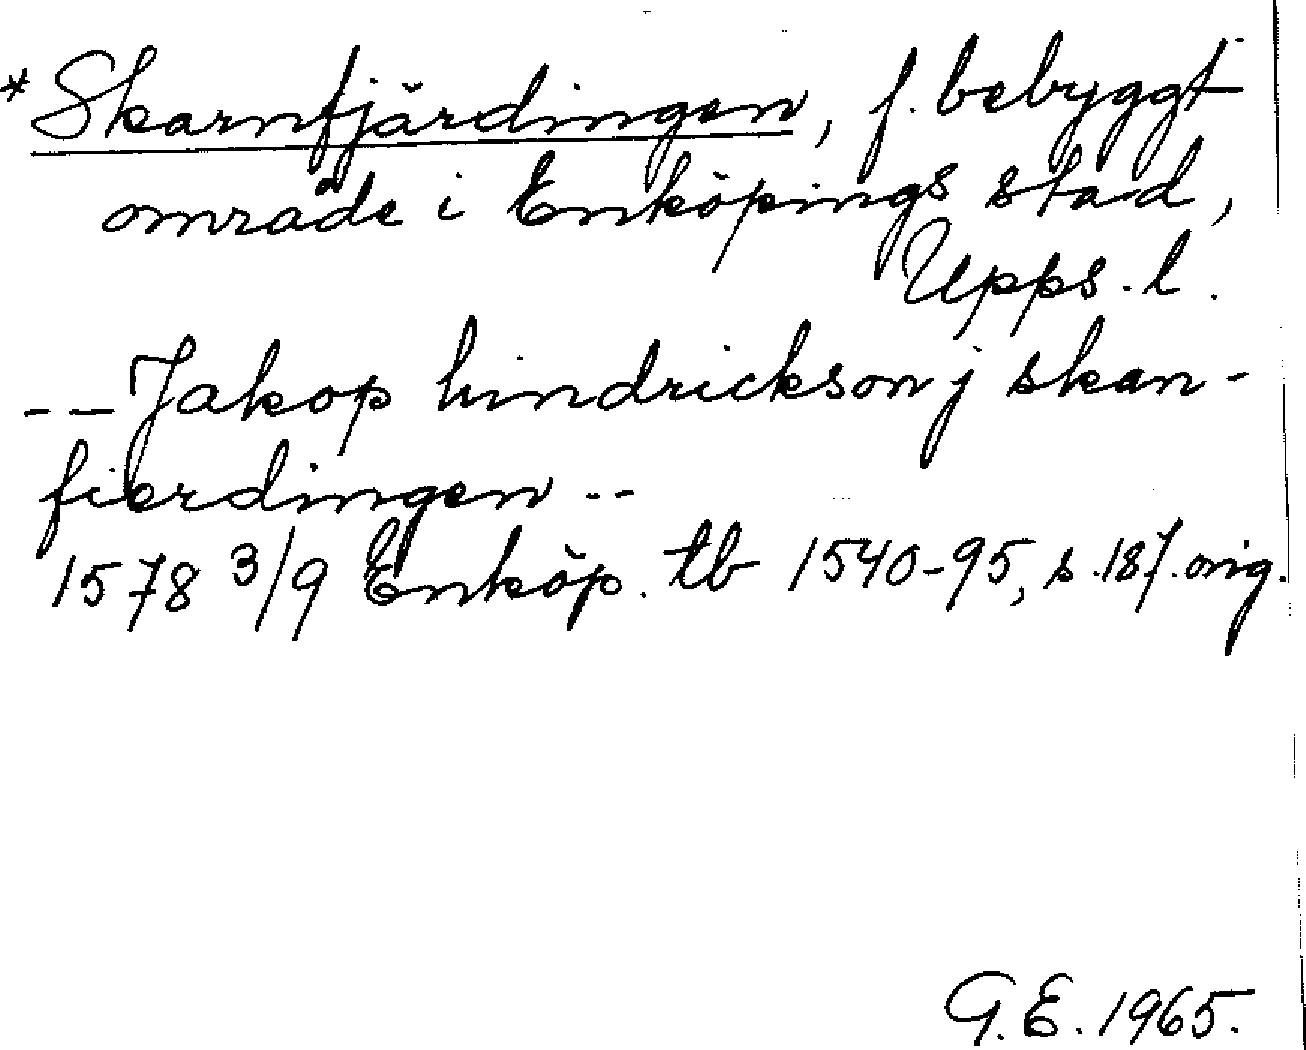 * Skarnfjärdingen, f. bebyggt
område i Enköpings stad,
Upps. l.
-- Jakop hindrickson j skan-
fierdingen --
1578 3/9 Enköp. tb 1540-95, s. 187. orig.
G.E. 1965.